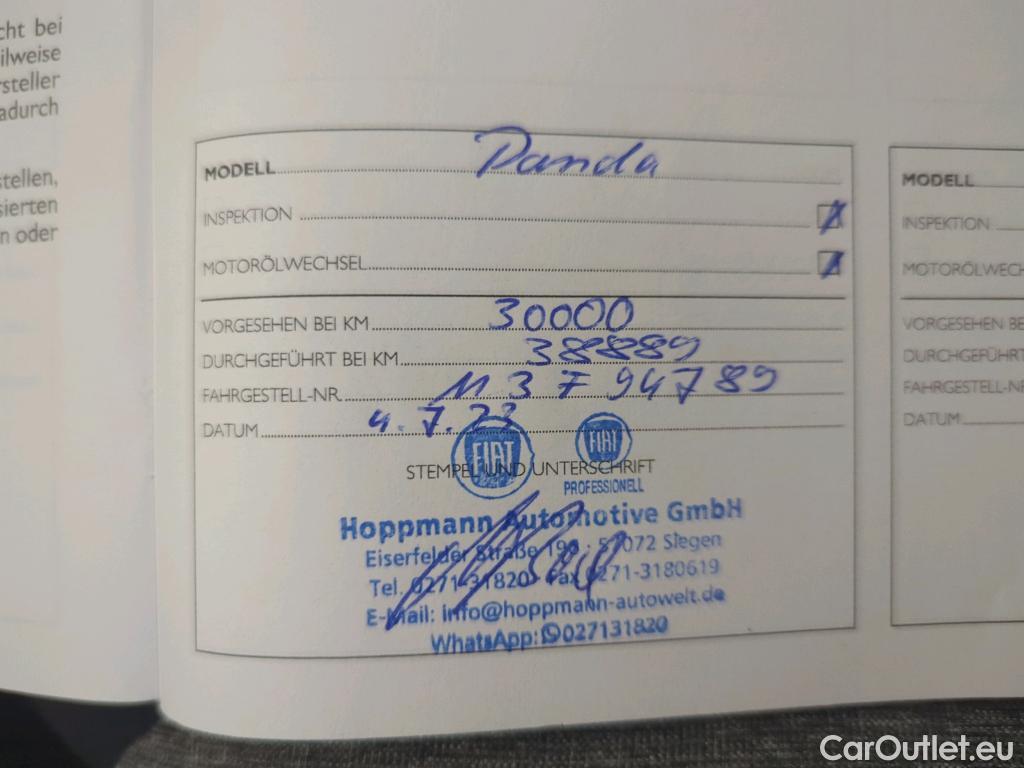 cht bei
ilweise
rsteller
adurch
stellen,
sierten
n oder
MODELL Panda
INSPEKTION
MOTORÖLWECHSEL
VORGESEHEN BEI KM 30000
DURCHGEFÜHRT BEI KM 38889
FAHRGESTELL-NR. M3F94789
DATUM 4.7.23
FIAT FIAT
STEMPEL UND UNTERSCHRIFT
PROFESSIONELL
Hoppmann Automotive GmbH
Eiserfelder Straße 196 · 57072 Siegen
Tel. 0271-31820 · Fax 0271-3180619
E-Mail: info@hoppmann-autowelt.de
WhatsApp: 027131820
MODELL
INSPEKTION
MOTORÖLWECH
VORGESEHEN BE
DURCHGEFÜHRT
FAHRGESTELL-N
DATUM
CarOutlet.eu